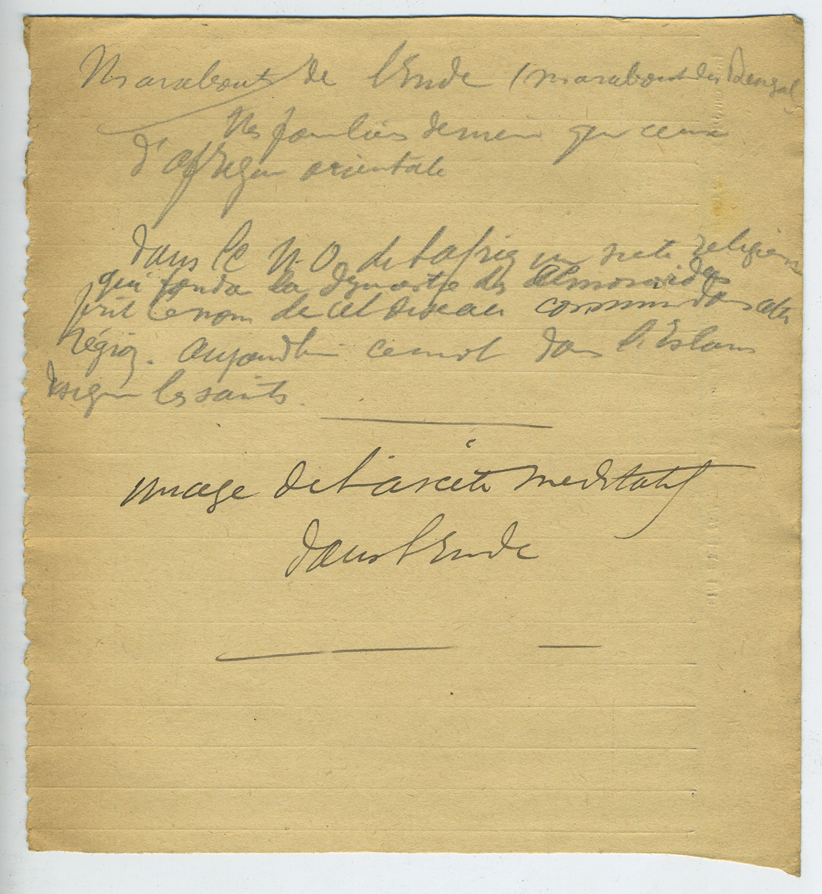 Marabouts de l'Inde (marabout du Bengal
d'Afrique orientale
Dans le N.O. de l'Afriq une secte religieuse
qui fonda la dynastie des Almoravides
prit le nom de cet oiseau commun dans cette
région. Aujourd'hui ce mot dans l'Islam
désigne les saints
image de l'ascète méditatif
dans l'Inde